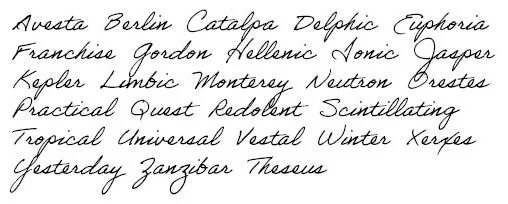 Avesta Berlin Catalpa Delphic Euphoria
Franchise Gordon Hellenic Ionic Jasper
Kepler Limbic Monterey Neutron Orestes
Practical Quest Redolent Scintillating
Tropical Universal Vestal Winter Xerxes
Yesterday Zanzibar Theseus